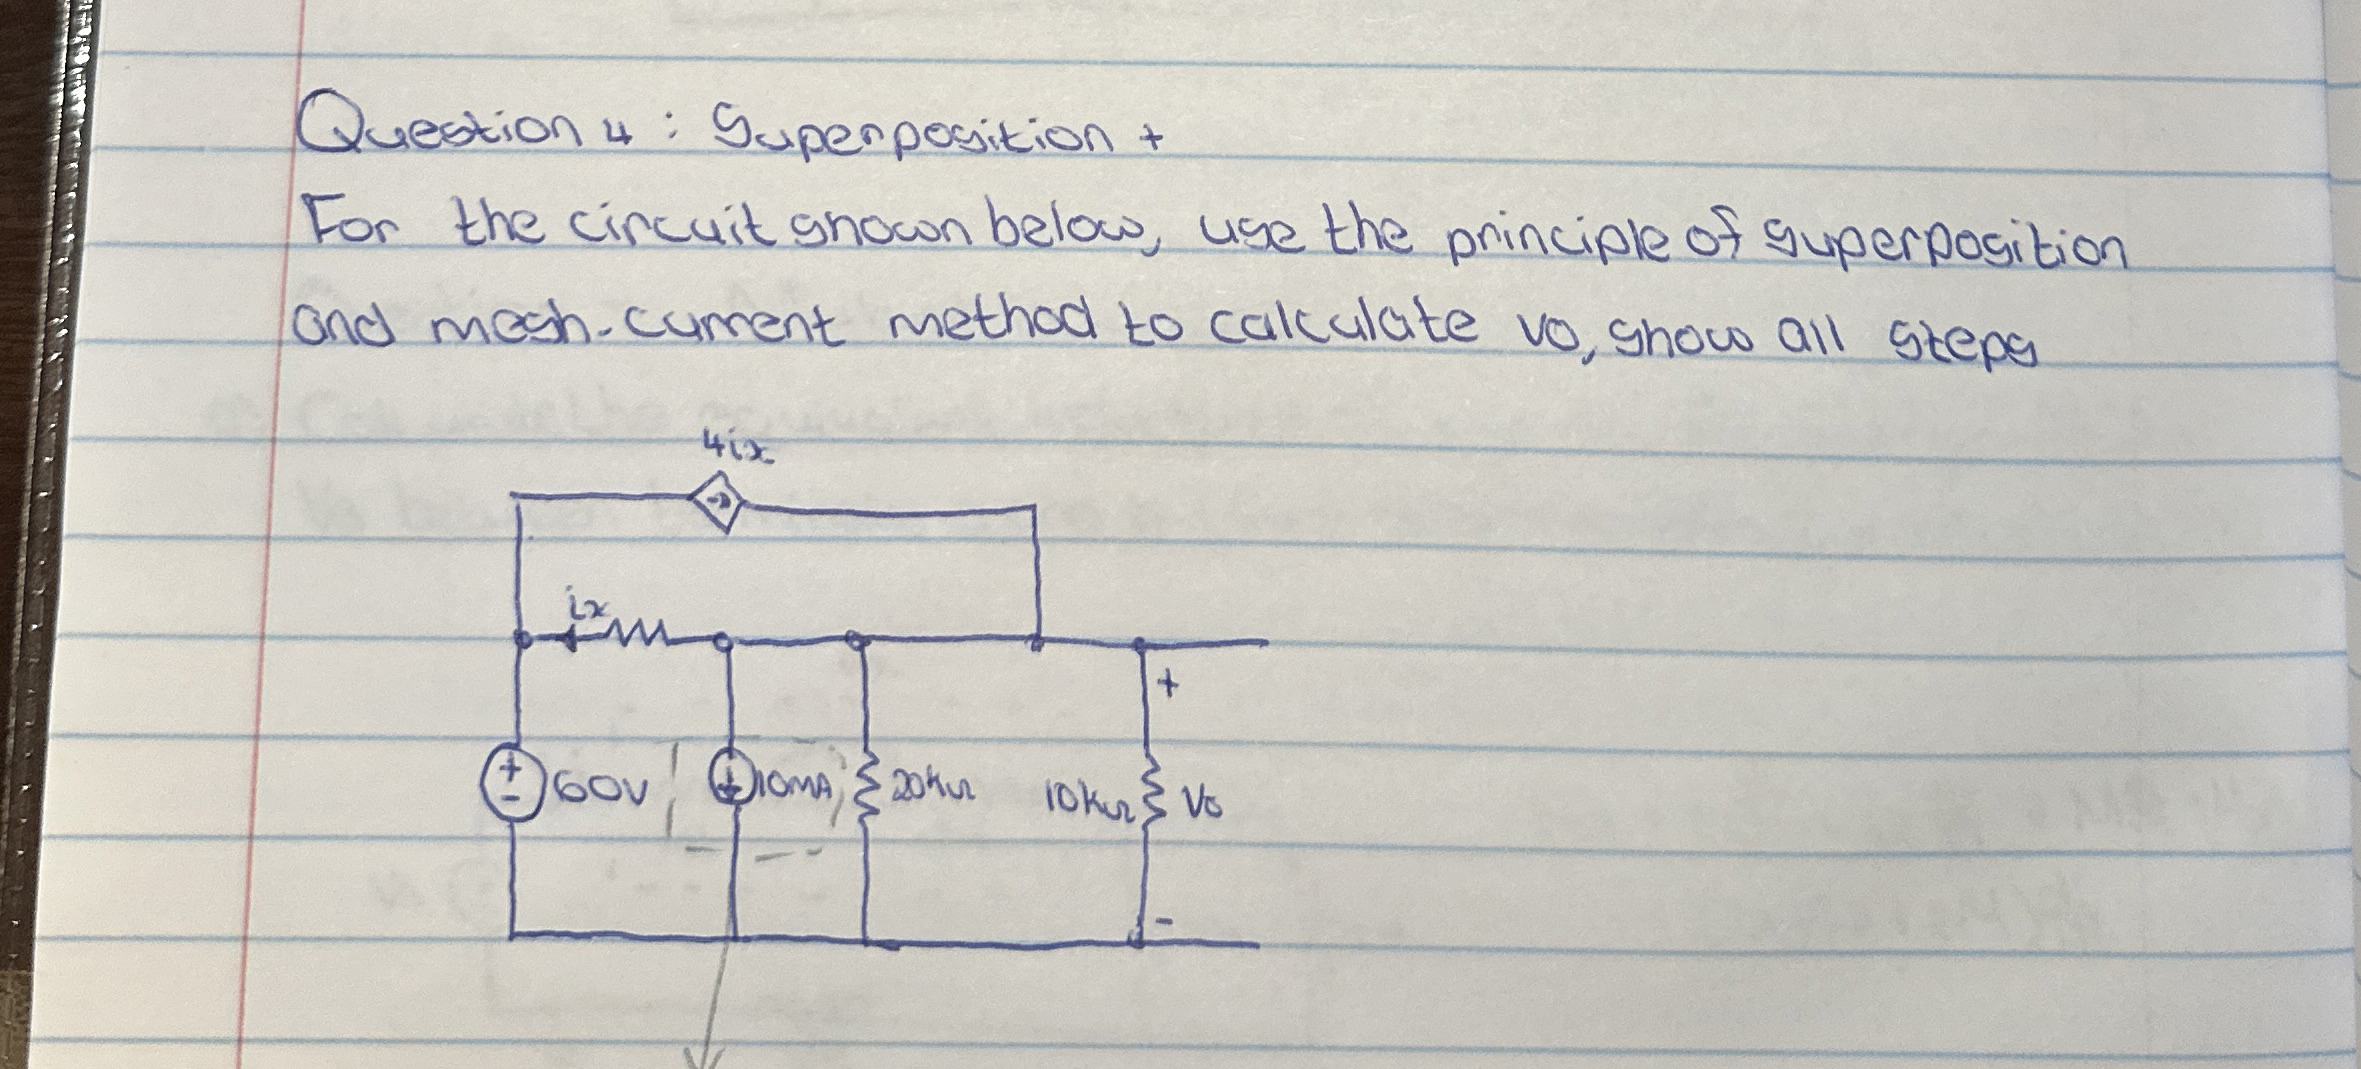 Question 4 : Superposition +
For the circuit shown below, use the principle of superposition
and mesh-current method to calculate vo, show all steps
4ix
ix
+
+
-
60V
10mA
20kΩ
10kΩ
Vo
-